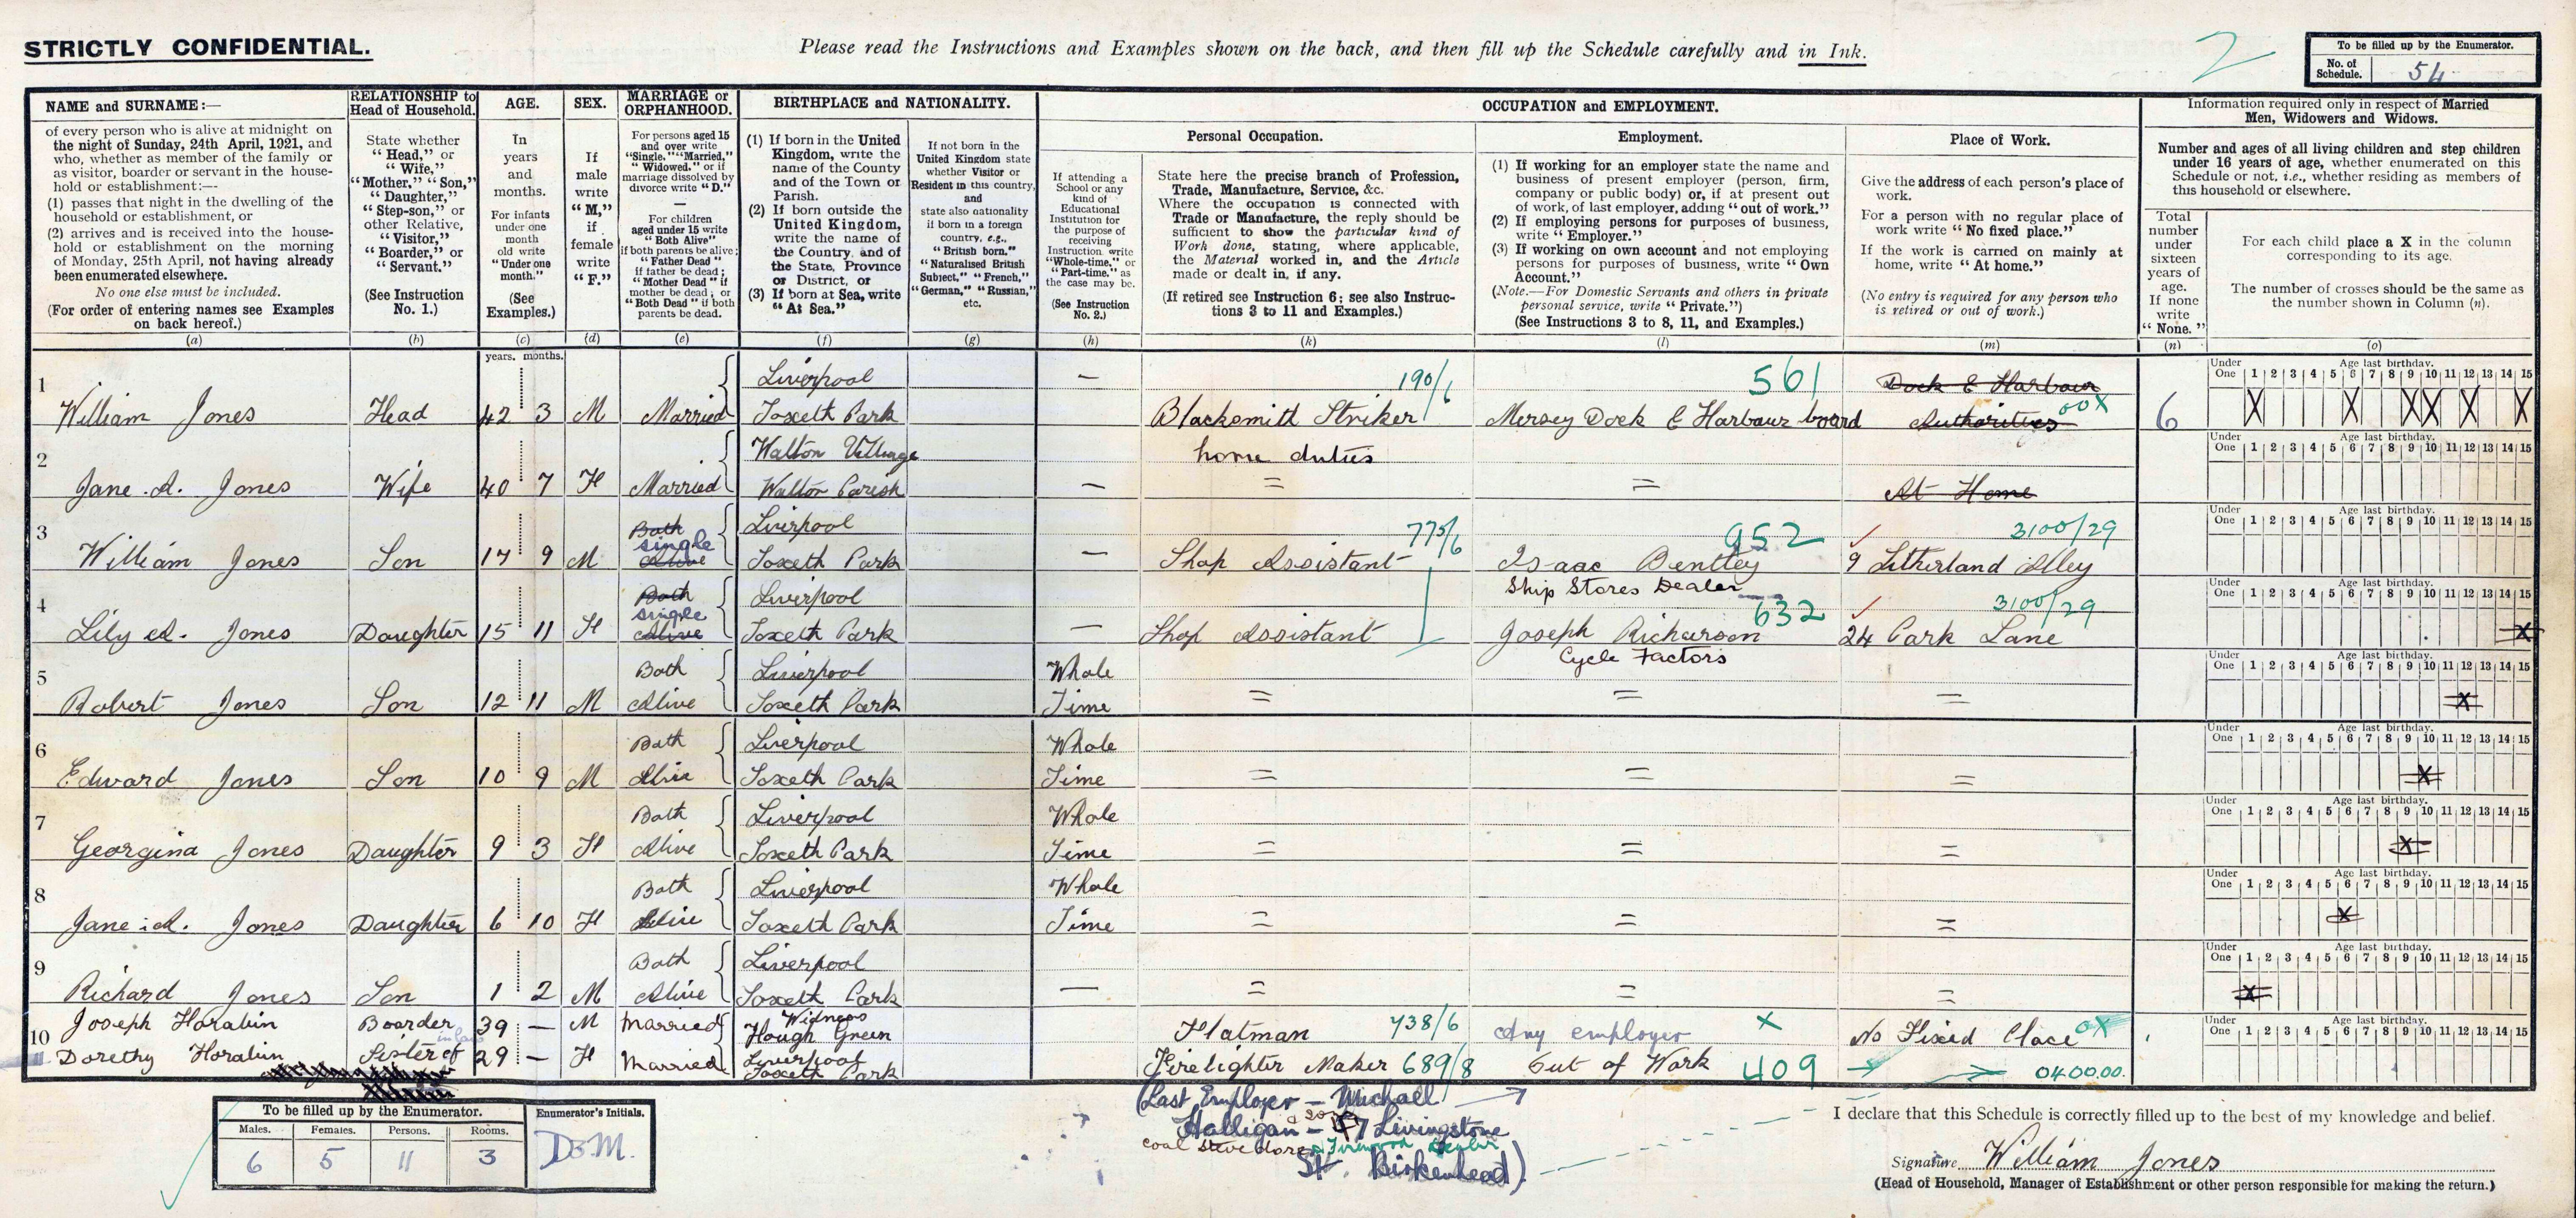 STRICTLY CONFIDENTIAL.
Please read the Instructions and Examples shown on the back, and then fill up the Schedule carefully and in Ink.
2
To be filled up by the Enumerator.
No. of Schedule. 54
NAME and SURNAME:—
of every person who is alive at midnight on
the night of Sunday, 24th April, 1921, and
who, whether as member of the family or
as visitor, boarder or servant in the house-
hold or establishment:—
(1) passes that night in the dwelling of the
household or establishment, or
(2) arrives and is received into the house-
hold or establishment on the morning
of Monday, 25th April, not having already
been enumerated elsewhere.
No one else must be included.
(For order of entering names see Examples
on back hereof.)
(a)
RELATIONSHIP to
Head of Household.
State whether
"Head," or
"Wife,"
"Mother," "Son,"
"Daughter,"
"Step-son," or
other Relative,
"Visitor,"
"Boarder," or
"Servant."
(See Instruction
No. 1.)
(b)
AGE.
In
years
and
months.
For infants
under one
month
old write
"Under one
month."
(See
Examples.)
(c)
SEX.
If
male
write
"M,"
if
female
write
"F."
(d)
MARRIAGE or
ORPHANHOOD.
For persons aged 15
and over write
"Single," "Married,"
"Widowed," or if
marriage dissolved by
divorce write "D."
For children
aged under 15 write
"Both Alive"
if both parents be alive;
"Father Dead"
if father be dead;
"Mother Dead" if
mother be dead; or
"Both Dead" if both
parents be dead.
(e)
BIRTHPLACE and NATIONALITY.
(1) If born in the United
Kingdom, write the
name of the County
and of the Town or
Parish.
(2) If born outside the
United Kingdom,
write the name of
the Country, and of
the State, Province
or District, or
(3) If born at Sea, write
"At Sea."
(f)
If not born in the
United Kingdom state
whether Visitor or
Resident in this country,
and
state also nationality
if born in a foreign
country, e.g.,
"British born,"
"Naturalised British
Subject," "French,"
"German," "Russian,"
etc.
(g)
OCCUPATION and EMPLOYMENT.
If attending a
School or any
kind of
Educational
Institution for
the purpose of
receiving
Instruction, write
"Whole-time," or
"Part-time," as
the case may be.
(See Instruction
No. 2.)
(h)
Personal Occupation.
State here the precise branch of Profession,
Trade, Manufacture, Service, &c.
Where the occupation is connected with
Trade or Manufacture, the reply should be
sufficient to show the particular kind of
Work done, stating, where applicable,
the Material worked in, and the Article
made or dealt in, if any.
(If retired see Instruction 6; see also Instruc-
tions 3 to 11 and Examples.)
(k)
Employment.
(1) If working for an employer state the name and
business of present employer (person, firm,
company or public body) or, if at present out
of work, of last employer, adding "out of work."
(2) If employing persons for purposes of business,
write "Employer."
(3) If working on own account and not employing
persons for purposes of business, write "Own
Account."
(Note.—For Domestic Servants and others in private
personal service, write "Private.")
(See Instructions 3 to 8, 11, and Examples.)
(l)
Place of Work.
Give the address of each person's place of
work.
For a person with no regular place of
work write "No fixed place."
If the work is carried on mainly at
home, write "At home."
(No entry is required for any person who
is retired or out of work.)
(m)
Information required only in respect of Married
Men, Widowers and Widows.
Number and ages of all living children and step children
under 16 years of age, whether enumerated on this
Schedule or not, i.e., whether residing as members of
this household or elsewhere.
Total
number
under
sixteen
years of
age.
If none
write
"None."
(n)
For each child place a X in the column
corresponding to its age.
The number of crosses should be the same as
the number shown in Column (n).
(o)
years. months.
Under One Age last birthday. 1 2 3 4 5 6 7 8 9 10 11 12 13 14 15
1 Liverpool — 190/6 561 Dock & Harbour
William Jones Head 42 3 M Married Toxeth Park Blacksmith Striker Mersey Dock & Harbour board Authorities 00X 6 X X X X X X
2 Walton Village home duties
Jane A. Jones Wife 40 7 F Married Walton Parish — = = At Home
3 Both single Alive Liverpool 775/6 952 3100/29
William Jones Son 17 9 M Toxeth Park — Shop Assistant Isaac Bentley 9 Litherland Alley
Ship Stores Dealer
4 Both single Alive Liverpool 632 3100/29
Lily A. Jones Daughter 15 11 F Toxeth Park — Shop Assistant Joseph Richarson 24 Park Lane X
Cycle Factors
5 Both Liverpool Whole
Robert Jones Son 12 11 M Alive Toxeth Park Time = = = X
6 Both Liverpool Whole
Edward Jones Son 10 9 M Alive Toxeth Park Time = = = X
7 Both Liverpool Whole
Georgina Jones Daughter 9 3 F Alive Toxeth Park Time = = = X
8 Both Liverpool Whole
Jane A. Jones Daughter 6 10 F Alive Toxeth Park Time = = = X
9 Both Liverpool
Richard Jones Son 1 2 M Alive Toxeth Park — = = = X
10 Joseph Horabin Boarder 39 — M Married Widness Hough Green Flatman 738/6 Any employer X No Fixed Place OX
11 Dorethy Horabin Sister in law of 29 — F Married Liverpool Toxeth Park Firelighter Maker 689/8 Out of Work 409 0400.00.
(Last Employer — Michael
Halligan — 47 Livingstone
coal Stevedore & Firewood Dealer
St. Birkenhead)
To be filled up by the Enumerator.
Males. Females. Persons. Rooms.
6 5 11 3
Enumerator's Initials.
I declare that this Schedule is correctly filled up to the best of my knowledge and belief.
Signature William Jones
(Head of Household, Manager of Establishment or other person responsible for making the return.)